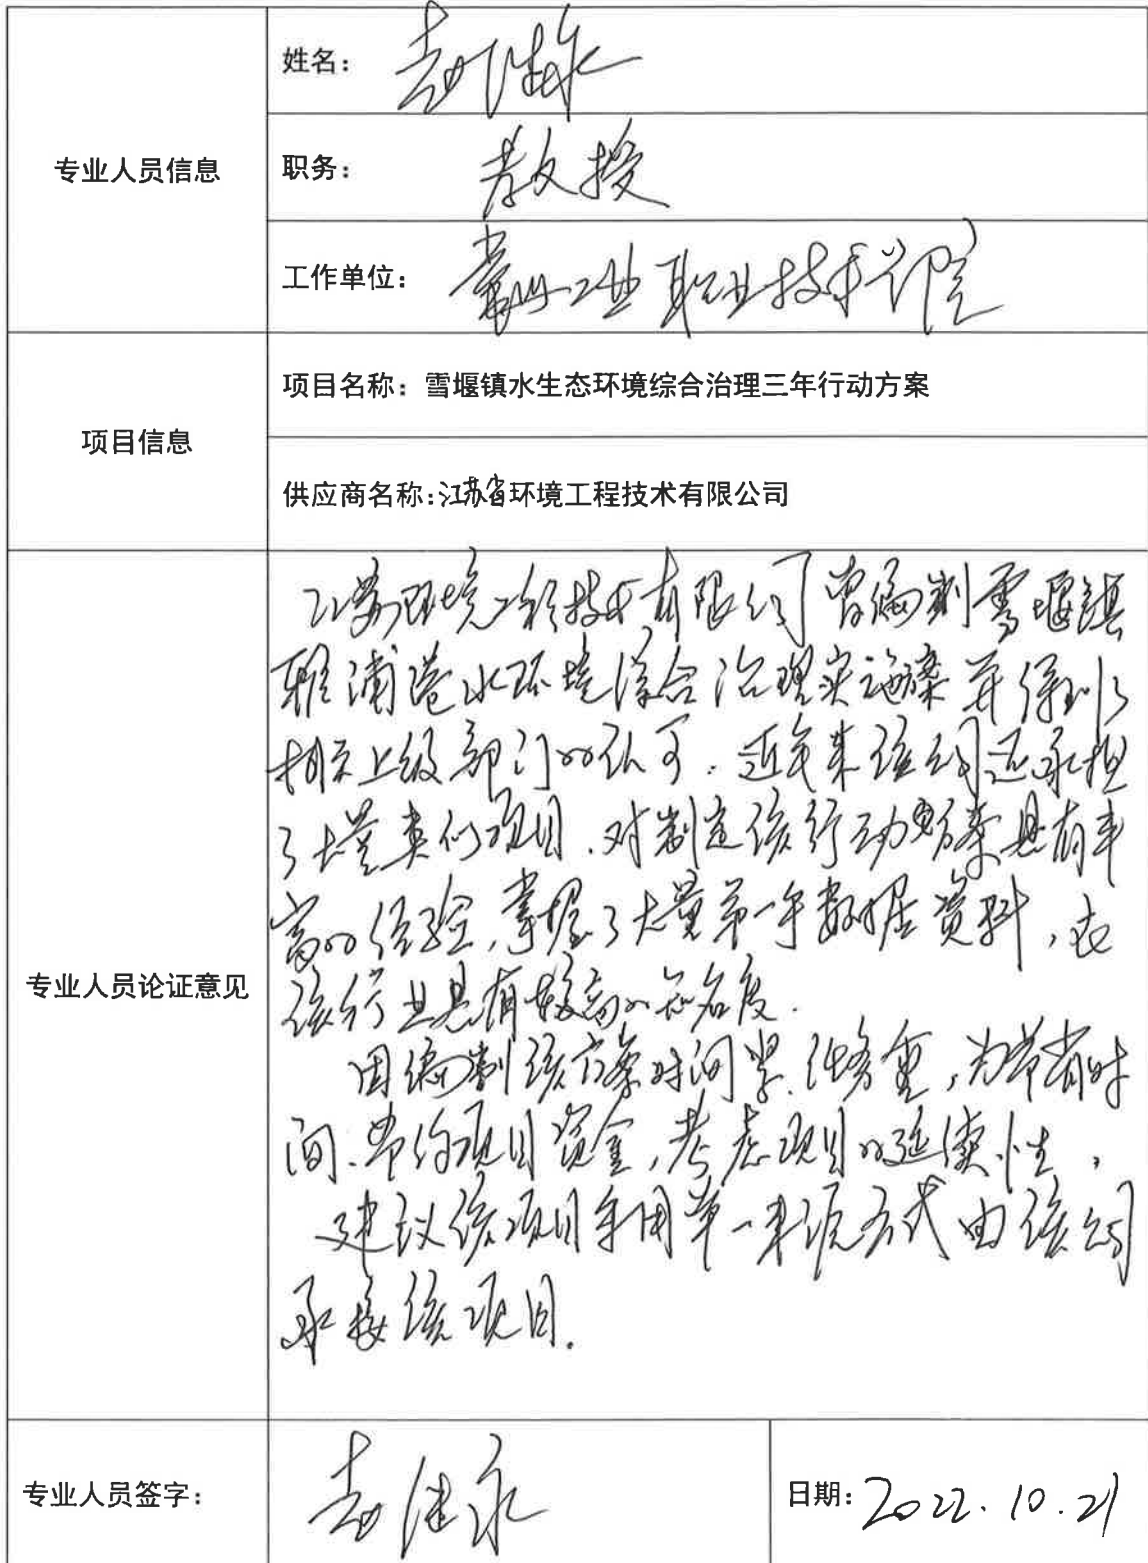 专业人员信息
姓名：
职务：教授
工作单位：常州工业职业技术学院
项目信息
项目名称：雪堰镇水生态环境综合治理三年行动方案
供应商名称:江苏省环境工程技术有限公司
专业人员论证意见
江苏环境工程技术有限公司曾编制雪堰镇
雅浦港水环境综合治理实施方案并得到了
相关上级部门的认可.近年来该公司还承担
了大量类似项目.对制定该行动方案具有丰
富的经验,掌握了大量第一手数据资料,在
该行业具有较高的知名度.
因编制该方案时间紧.任务重,为节省时
间.节约项目资金,考虑项目的延续性,
建议该项目采用单一来源方式由该公司
承接该项目.
专业人员签字：
日期：2022.10.21